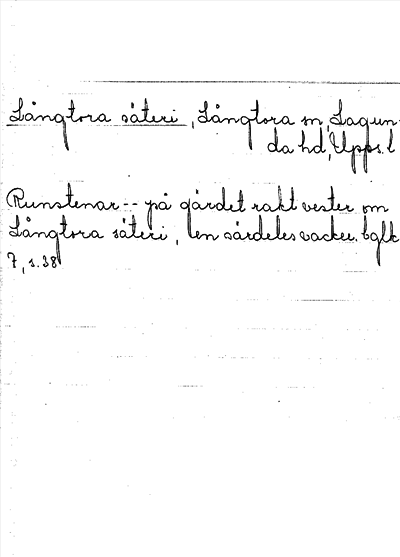 Långtora säteri, Långtora sn, Lagun-
da hd, Upps. l
Runstenar -- på gärdet rakt vester om
Långtora säteri, en särdeles vacker. bglk
7, s. 38